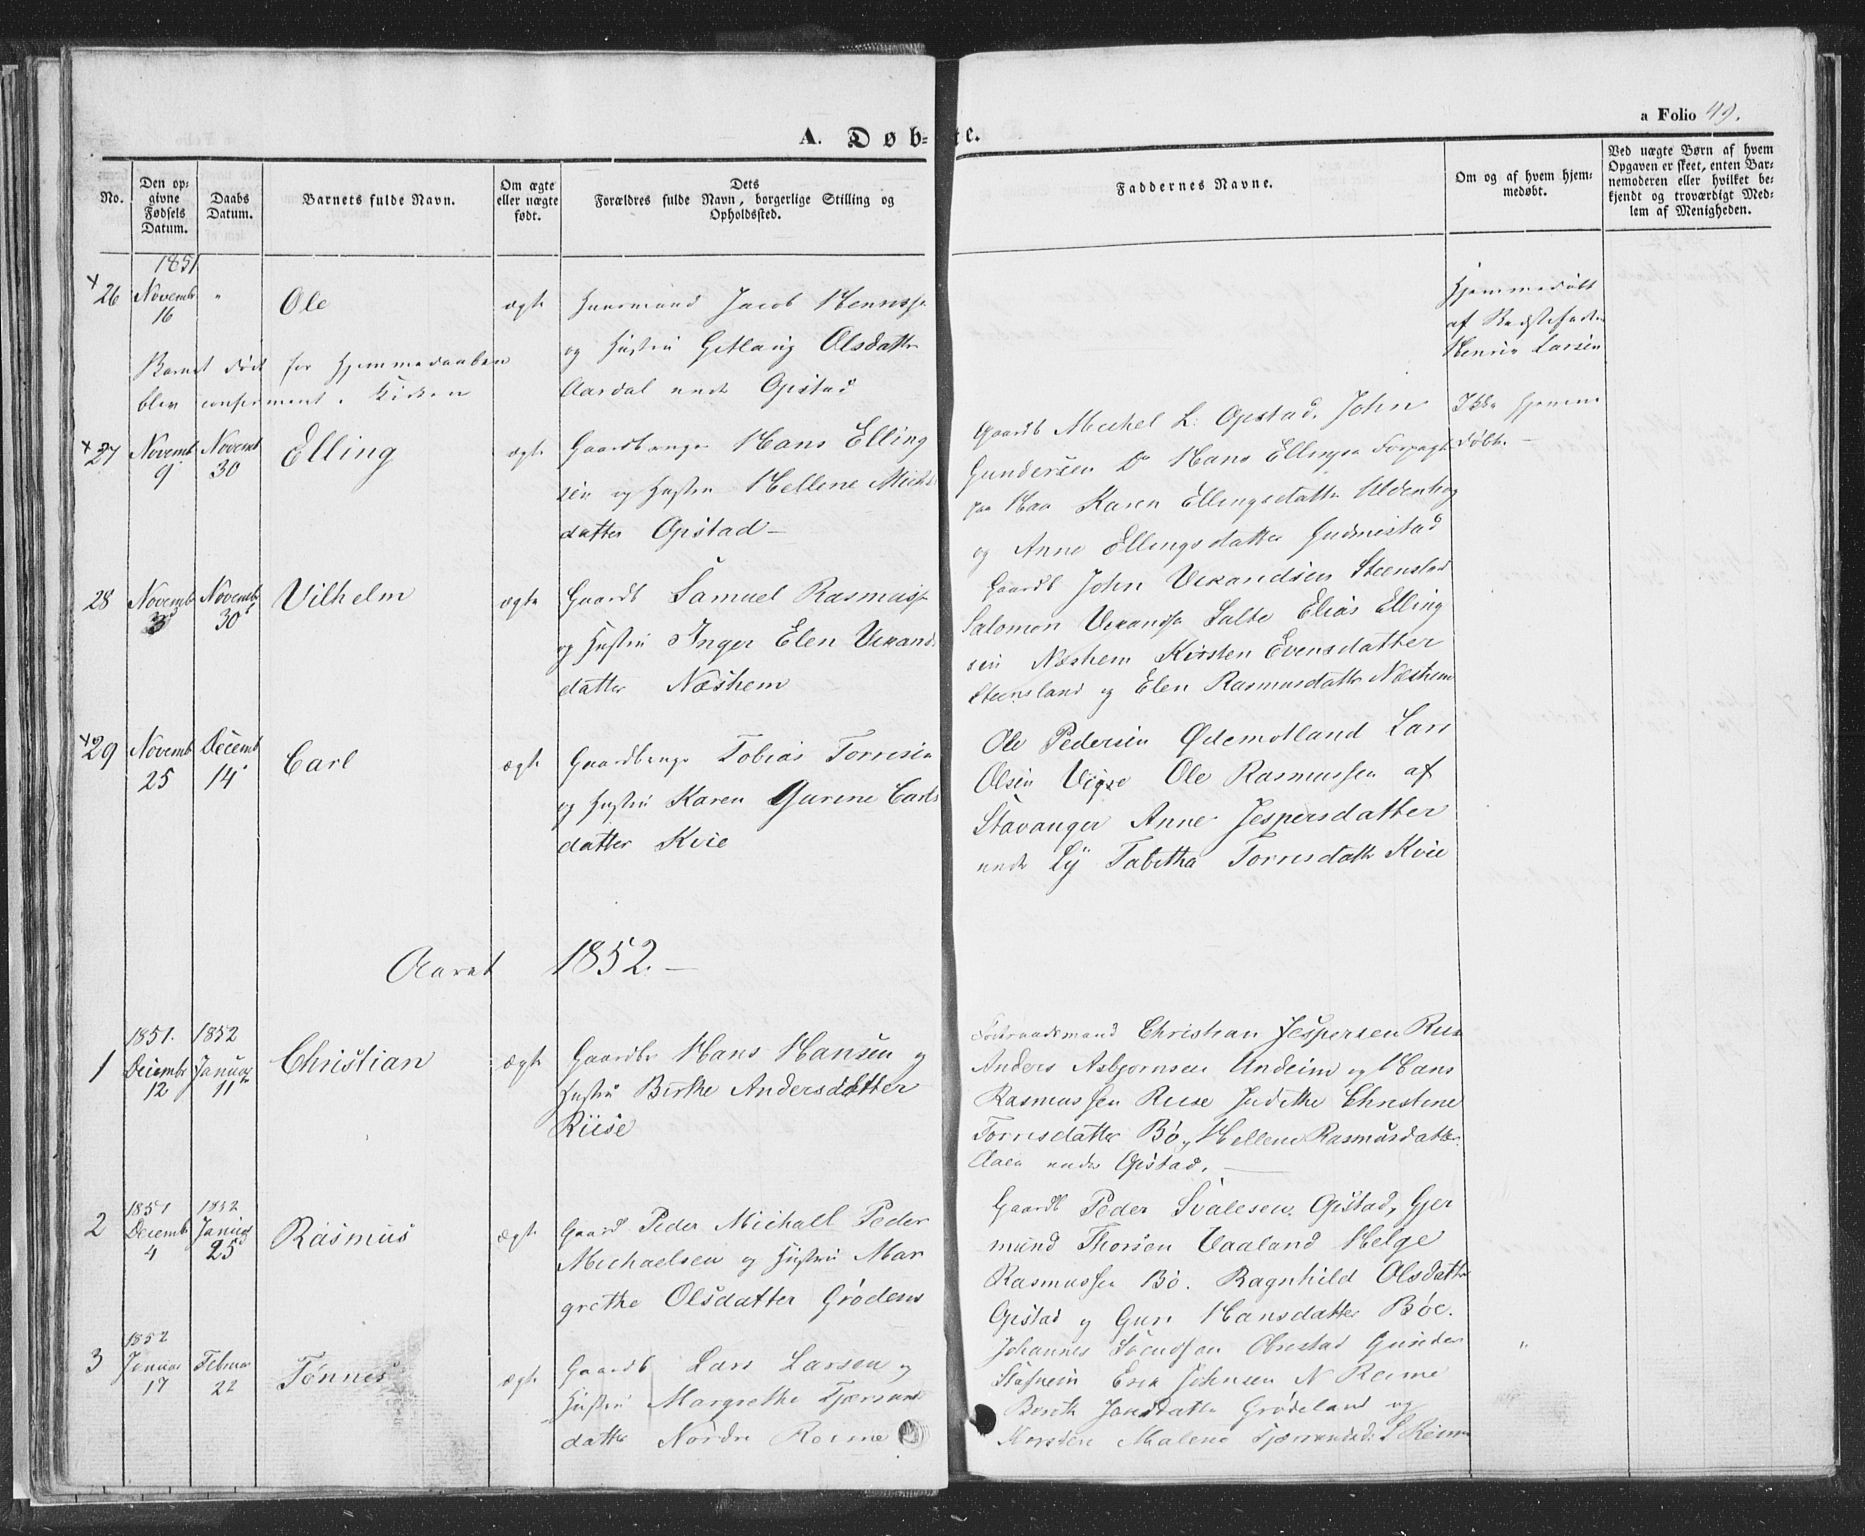 a Folio 49.
A. Døb=te.
No.
Den op=
givne
Fødsels
Datum.
Daabs
Datum.
Barnets fulde Navn.
Om ægte
eller uægte
født.
Dets
Forældres fulde Navn, borgerlige Stilling og
Opholdssted.
Faddernes Navne.
Om og af hvem hjem=
medøbt.
Ved uægte Børn af hvem
Opgaven er skeet, enten Bar=
nemoderen eller hvilket be=
kjendt og troværdigt Med=
lem af Menigheden.
1851
26 Novemb 16 " Ole ægte Huusmand Jacob
og Hustru Olsdatter
Aardal under Opstad
Barnet død før Hjemmedaaben
blev confirmeret i Kirken
Hjemmedøbt
af
Larsen
27 Novemb 9 Novemb 30 Elling ægte Gaardbruger Hans Elling
sen og Hustru Hellene
datter Opstad –
Gaardb Michel L: Opstad, John
Gundersen Do Hans
paa Haa Karen Ellingsdatter
og Anne Ellingsdatter
Ikke hjemme
døbt. –
28 Novemb 3 Novemb 30 Vilhelm ægte Gaardb Samuel Rasmuss
og Hustru Inger Elen
datter Næshem
Gaardb John
Salomon Salte Elias Elling
sen Næshem Kirsten Evensdatter
Steensland og Elen Rasmusdatter Næshem
29 Novemb 25 Decemb 14 Carl ægte Gaardbruger Tobias Torresen
og Hustru Karen Gurine Carls
datter Kvie
Ole Pedersen Ødemotland Lars
Olsen Vigre Ole Rasmussen af
Stavanger Anne Jespersdatter
under Ly Tabitha Torresdatter Kvie
Aaret 1852. –
1 1851. Decemb 12 1852 Januar 11 Christian ægte Gaardbr Hans Hansen og
Hustru Birthe Andersdatter
Riise
Christian Jespersen
Anders Asbjørnsen Undeim og Hans
Rasmussen Riise Judithe Christine
Torresdatter Bø, Hellene Rasmusdatter
Aaen under Opstad. –
2 1851 Decemb 4 1852 Januar 25 Rasmus ægte Gaardb Peder Michall Peder
Michaelsen og Hustru Mar
grethe Olsdatter Grødens
Gaardb Peder Svalesen Opstad, Gjer
mund Thorsen Vaaland Helge
Rasmussen Bø. Ragnhild Olsdatter
Opstad og Guri Hansdatter Bøe.
3 1852 Januar 17 Februar 22 Tønnes ægte Gaardb Lars Larsen og
Hustru Margrethe
datter Nordre Reime
Johannes Svendsen Obrestad Gunder
Erik Johnsen N Reime
Berith Grødeland og
Malene Reime
"